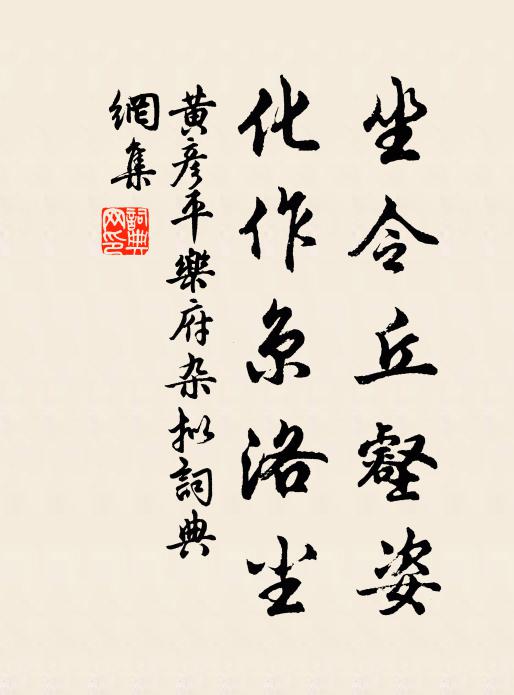 坐令丘壑姿
化作京洛尘
黄彦平樂府杂拟詞典
網集
詞典網印